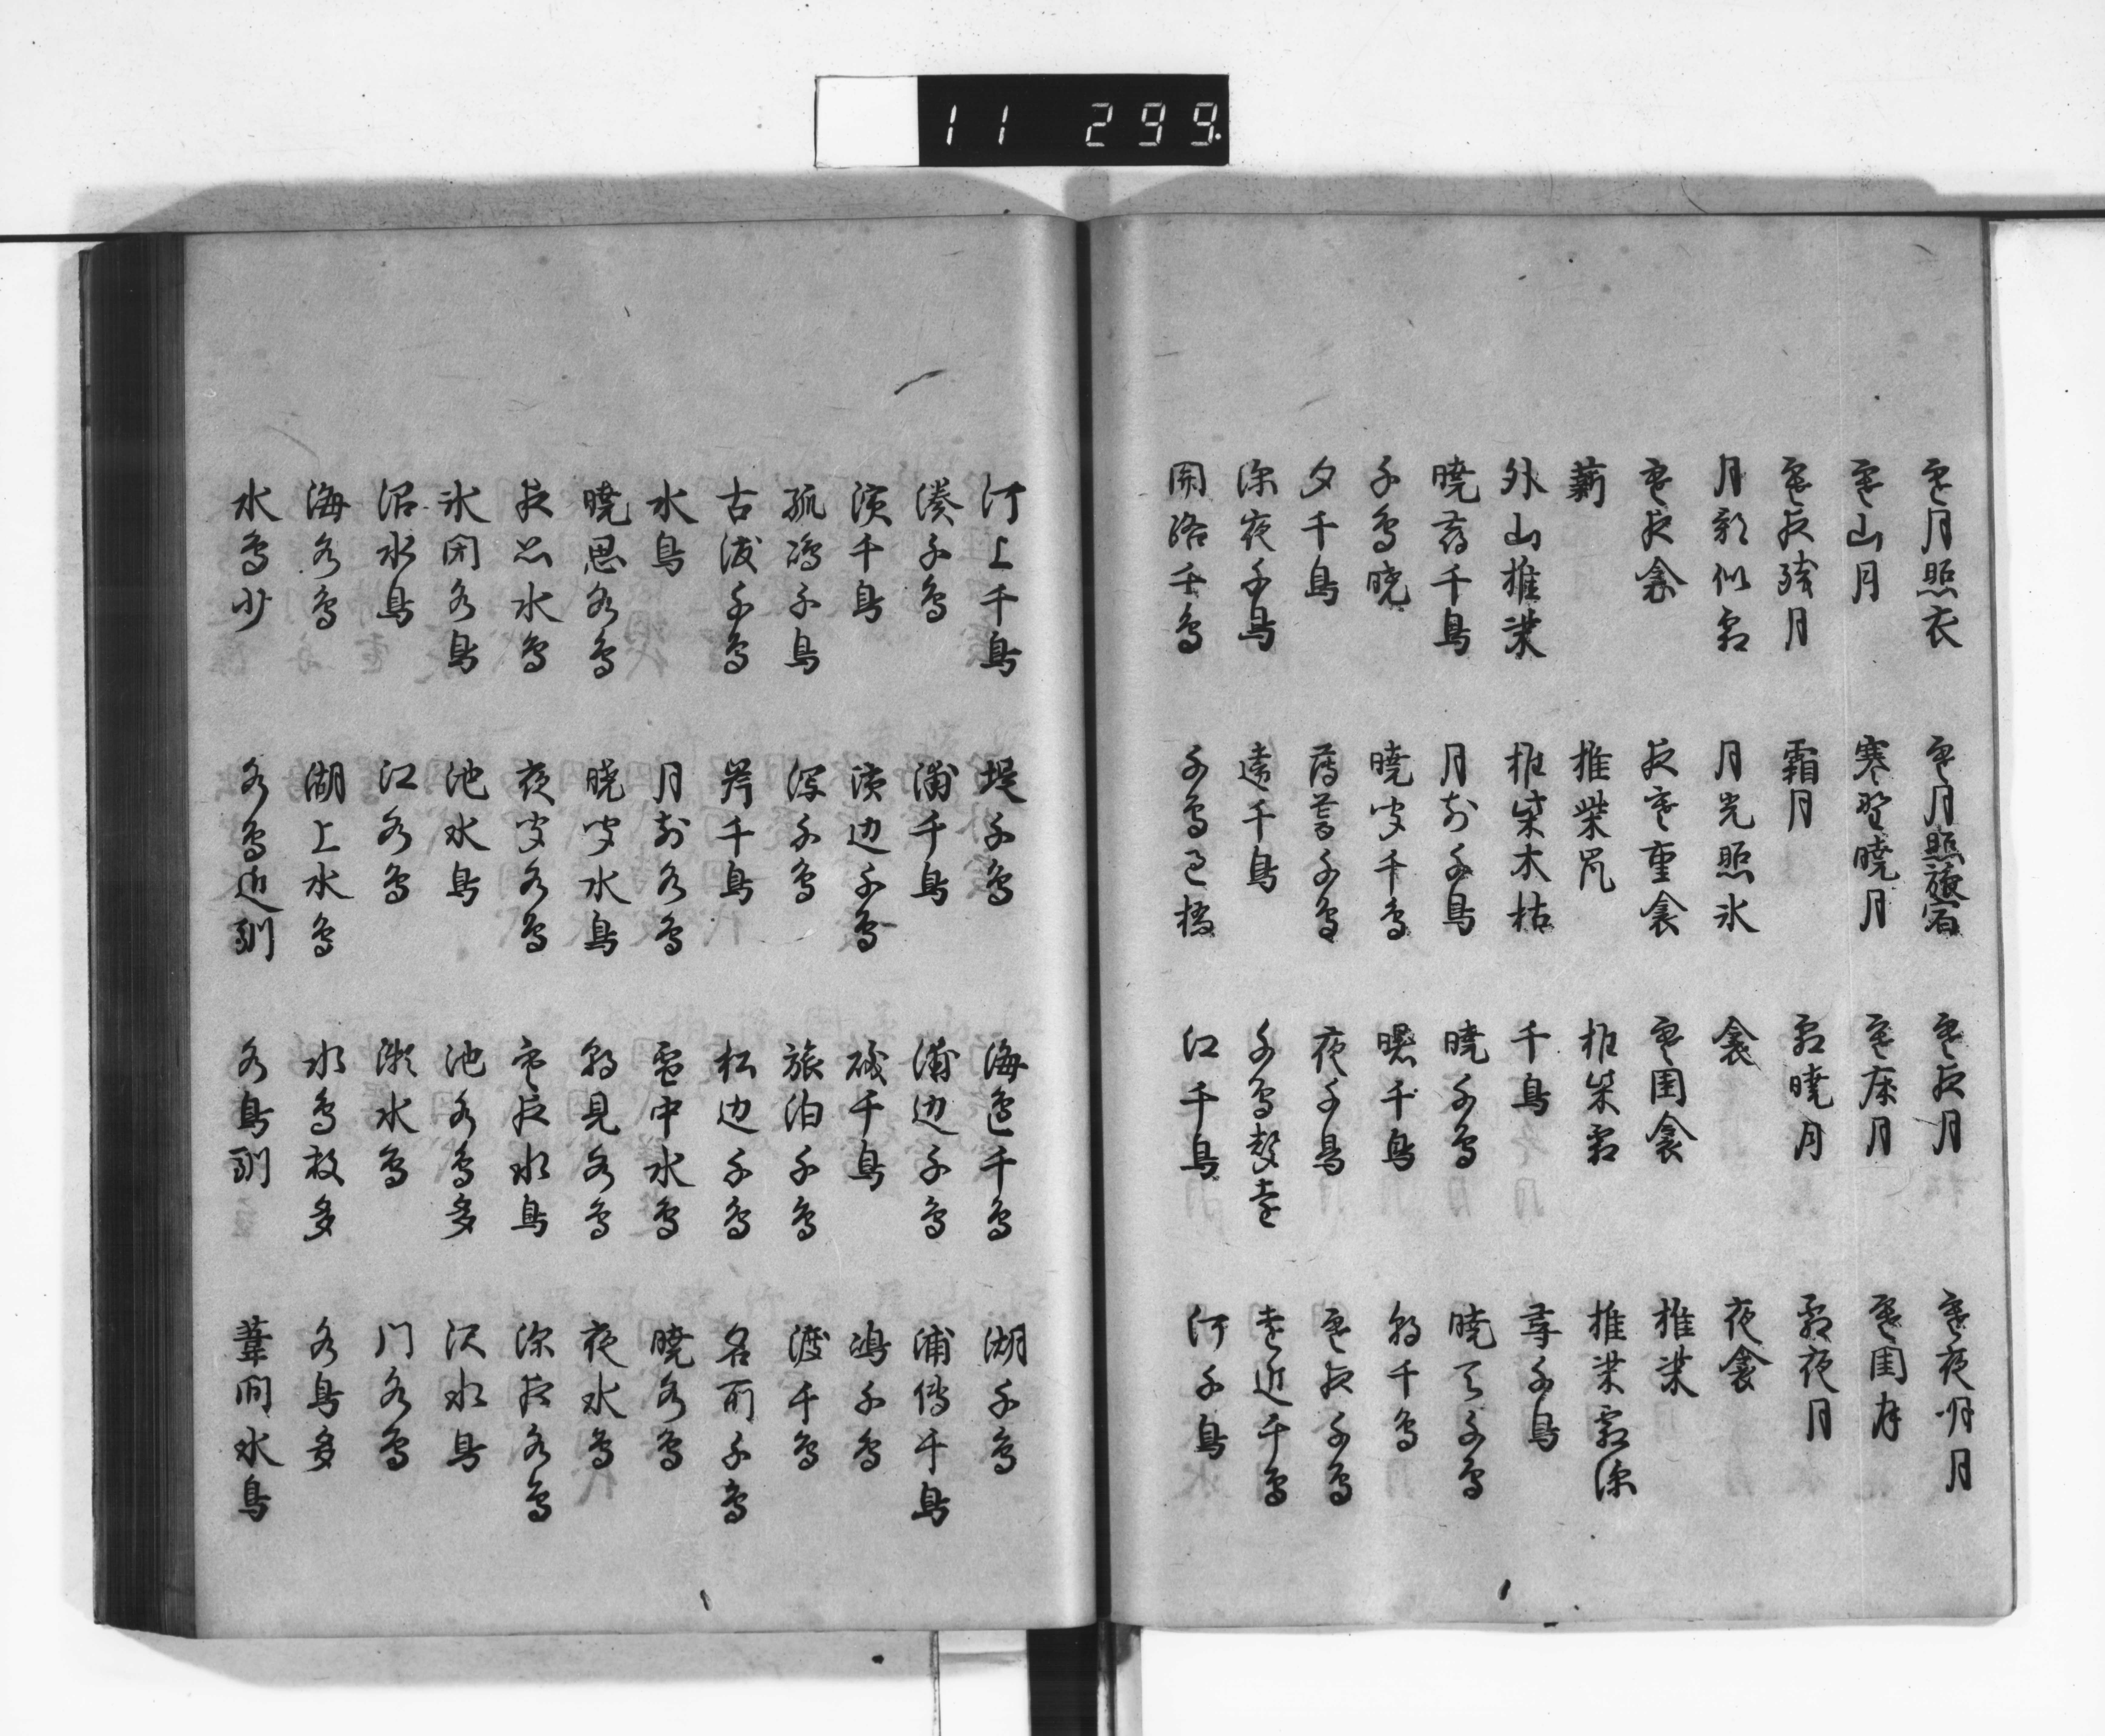 11 299.
寒月照衣 寒月照旅宿 寒夜月 寒夜明月
寒山月 寒野暁月 寒床月 寒閨月
寒夜残月 霜月 霜暁月 霜夜月
月影似霜 月光照氷 衾 夜衾
寒夜衾 夜寒重衾 寒閨衾 椎柴
薪 椎柴風 椎柴霜 椎柴霜深
外山椎柴 椎柴木枯 千鳥 尋千鳥
暁尋千鳥 月前千鳥 暁千鳥 暁天千鳥
千鳥暁 暁聞千鳥 曙千鳥 朝千鳥
夕千鳥 薄暮千鳥 夜千鳥 寒夜千鳥
深夜千鳥 遠千鳥 千鳥声遠 遠近千鳥
関路千鳥 千鳥過橋 江千鳥 河千鳥
河上千鳥 堤千鳥 海辺千鳥 湖千鳥
湊千鳥 浦千鳥 浦辺千鳥 浦伝千鳥
浜千鳥 浜辺千鳥 磯千鳥 嶋千鳥
孤嶋千鳥 泻千鳥 旅泊千鳥 渡千鳥
古渡千鳥 岸千鳥 松辺千鳥 名所千鳥
水鳥 月前水鳥 雪中水鳥 暁水鳥
暁思水鳥 暁聞水鳥 朝見水鳥 夜水鳥
夜思水鳥 夜聞水鳥 寒夜水鳥 深夜水鳥
氷閉水鳥 池水鳥 池水鳥多 沢水鳥
沼水鳥 江水鳥 瀬水鳥 門水鳥
海水鳥 湖上水鳥 水鳥数多 水鳥多
水鳥少 水鳥近馴 水鳥馴 葦間水鳥